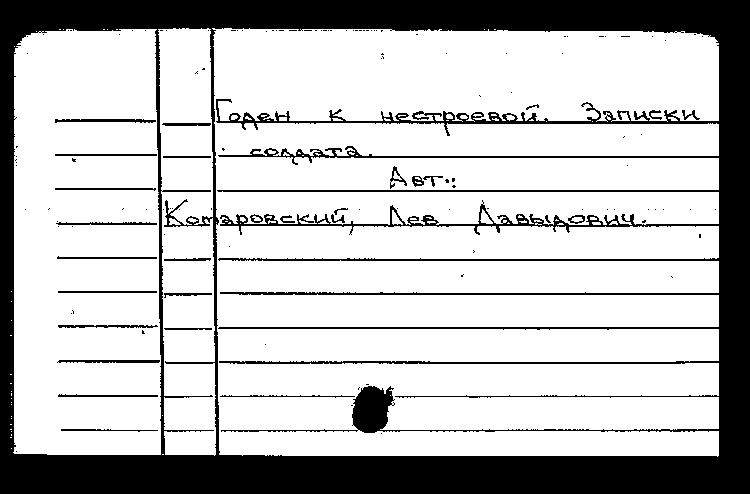 Годен к нестроевой. Записки
солдата.
Авт.:
Комаровский, Лев Давыдович.